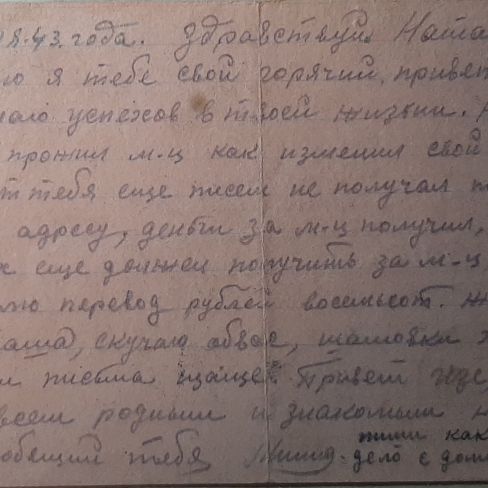 8.43. года. Здравствуй Ната
ю я тебе свой горячий привет
лаю успехов в твоей жизни.
прожил м-ц как изменил свой
от тебя еще писем не получал
адресу, деньги за м-ц получил,
еще должен получить за м-ц
лю перевод рублей восемьсот.
аша, скучаю обвас,
и письма чаще. Привет
всем родным и знакомым
юбящий тебя Миша. пиши как
дело с дом